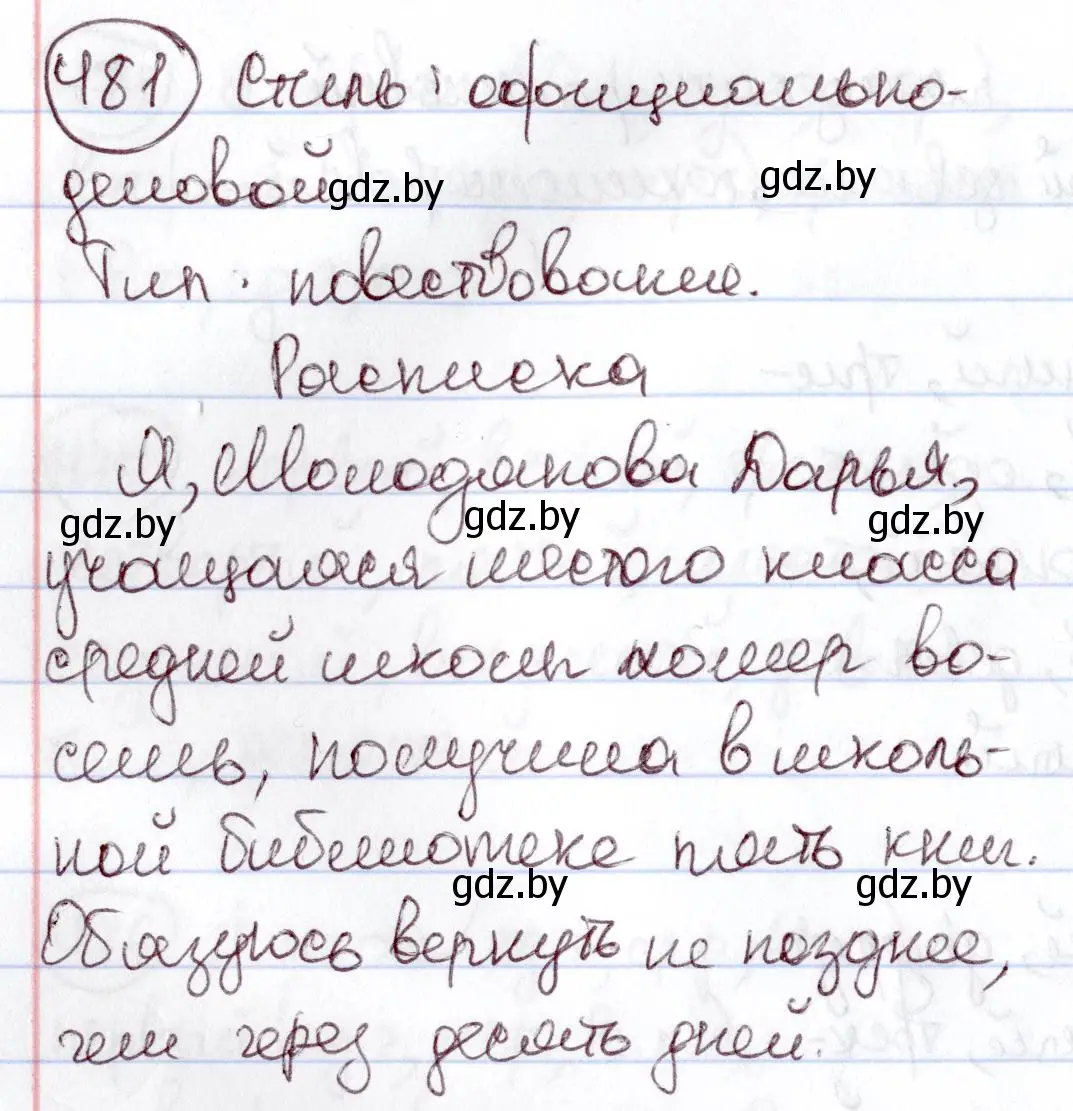 481 Стиль: официально-
деловой gdz.by gdz.by
Тип: повествование.
Расписка
Я, Молодякова Дарья,
gdz.by gdz.by gdz.by
учащаяся шестого класса
средней школы номер во-
семь, получила в школь-
ной библиотеке пять книг.
gdz.by gdz.by
Обязуюсь вернуть не позднее,
чем через десять дней.